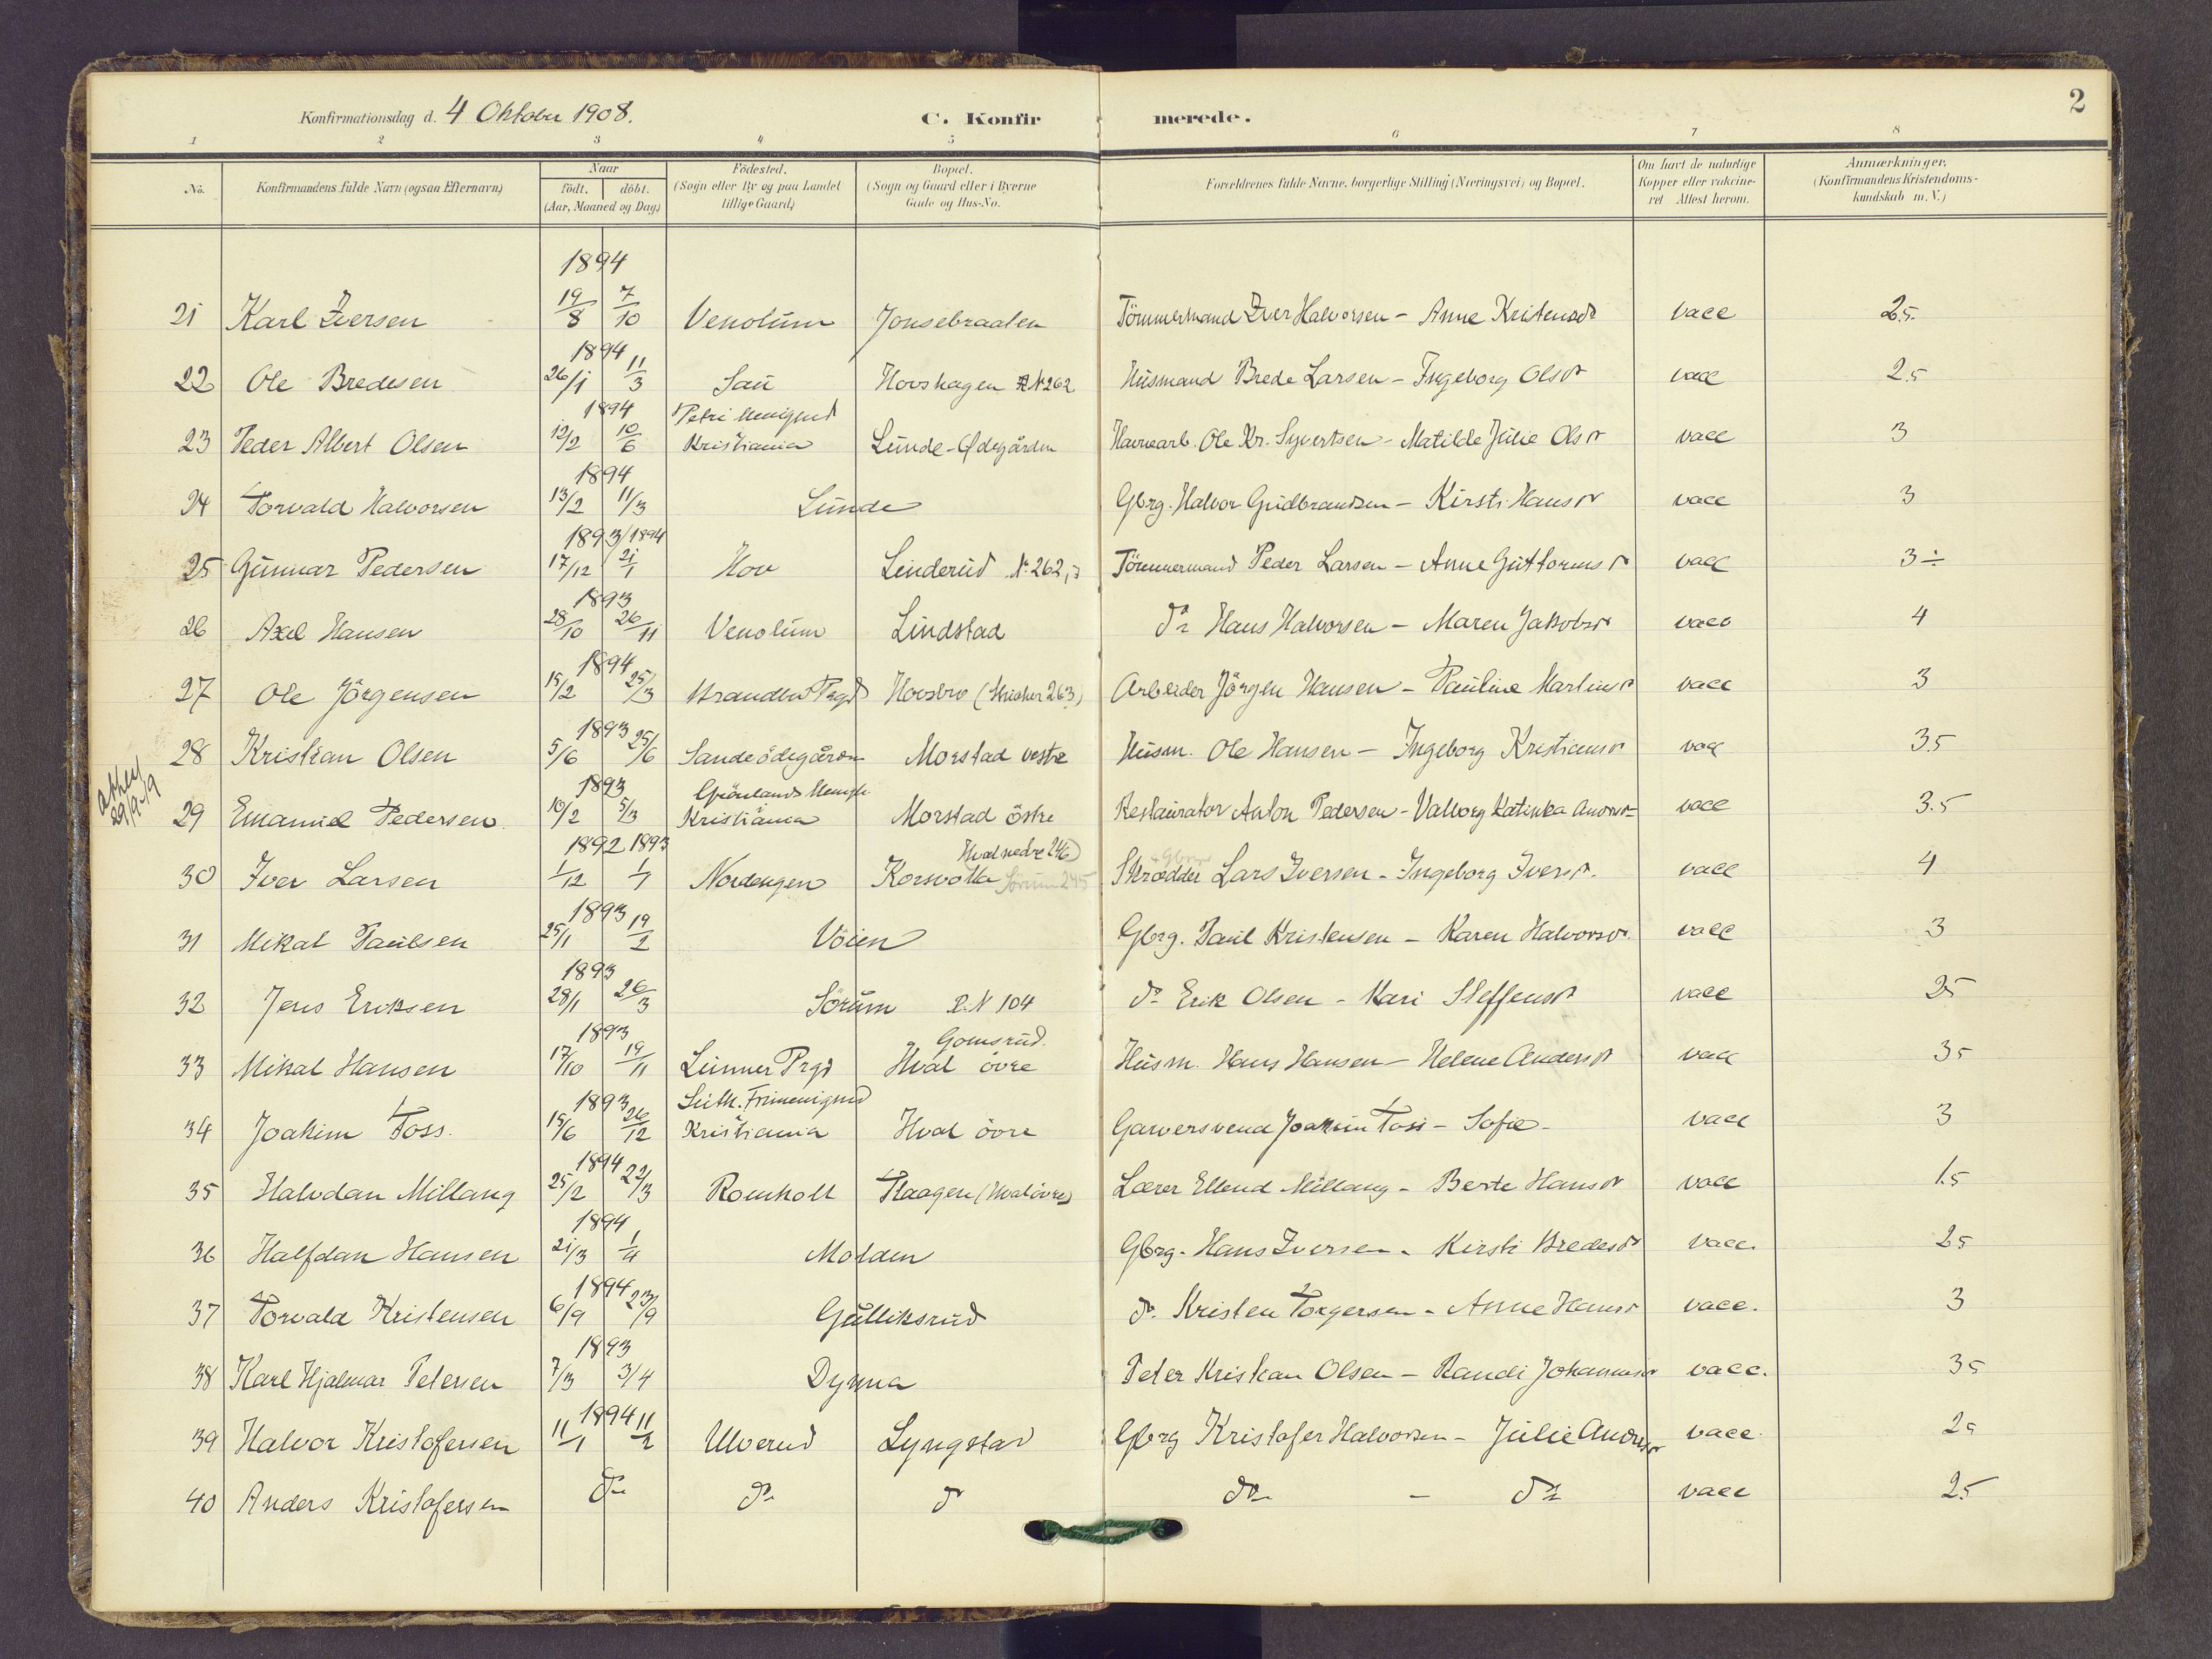 Konfirmationsdag d. 4 Oktober 1908. C. Konfirmerede. 2
1 2 3 4 5 6 7 8
No. Konfirmandens fulde Navn (ogsaa Efternavn) Naar födt. döbt. (Aar, Maaned og Dag.) Födested. (Sogn eller By og paa Landet tillige Gaard.) Bopæl. (Sogn og Gaard eller i Byerne Gade og Hus-No. Forældrenes fulde Navne, borgerlige Stilling (Næringsvei) og Bopæl. Om havt de naturlige Kopper eller vakcineret Attest herom. Anmærkninger. (Konfirmandens Kristendomskundskab m. V.)
1894
21 Karl Iversen 19/8 7/10 Venolum Jonsebraaten Tömmermand Iver Halvorsen - Anne Kristensd vacc 2.5
1894
22 Ole Bredesen 26/1 11/3 Sau Hovshagen N 262 Husmand Brede Larsen - Ingeborg Olsd vacc 2.5
1894 Petri Menighed
23 Peder Albert Olsen 12/2 10/6 Kristiania Lunde-Ødegården Havnearb. Ole Kr. Syvertsen - Matilde Julie Olsd vacc 3
1894
24 Torvald Halvorsen 13/2 11/3 Lunde Gbrg. Halvor Gudbrandsen - Kirsti Hansd vacc 3
1893/1894
25 Gunnar Pedersen 17/12 21/1 Hov Linderud N. 262, Tömmermand Peder Larsen - Anne Guttormsd vacc 3 ÷
1893
26 Axel Hansen 28/10 26/11 Venolum Lindstad do Hans Halvorsen - Maren Jakobsd vacc 4
1894
27 Ole Jörgensen 15/2 25/3 Brandbu Prgd Hovsbro (263) Arbeider Jörgen Hansen - Pauline Martinsd vacc 3
1893
28 Kristian Olsen 5/6 25/6 Sandeödegåren Morstad vestre Husm. Ole Hansen - Ingeborg Kristiansd vacc 3.5
29/9-19
1893 Grönlands Menigh
29 Emanuel Pedersen 10/2 5/3 Kristiania Morstad östre Restauratör Anton Pedersen - Valborg Katinka Andersd vacc 3.5
1892 1893 Hval nedre 246
30 Iver Larsen 1/12 1/1 Nordengen Korsvolla Sörum 245 Skrædder Lars Iversen - Ingeborg Iversd. vacc 4
1893
31 Mikal Paulsen 25/1 19/2 Vöien Gbrg. Paul Kristensen - Karen Halvorsd. vacc 3
1893
32 Jens Eriksen 28/1 26/3 Sörum R. N 104 do Erik Olsen - Kari Steffensd vacc 25
1893 Gomsrud.
33 Mikal Hansen 17/10 19/11 Lunner Prgd Hval övre Husm. Hans Hansen - Helene Andersd vacc 35
1893 Luth. Frimenighed
34 Joakim Foss. 15/6 26/12 Kristiania Hval övre Garversvend Joakim Foss - Sofie - vacc 3
1894
35 Halvdan Millang 25/2 22/3 Romholt Haagen (Hval övre) Lærer Ellend Millang - Berte Hansd vacc 1.5
1894
36 Halfdan Hansen 21/3 1/4 Molden Gbrg. Hans Iversen - Kirsti Bredesd vacc. 25
1894
37 Torvald Kristensen 6/9 23/9 Gulliksrud do. Kristen Torgersen - Anne Hansd vacc. 3
1893
38 Karl Hjalmar Petersen 7/3 3/4 Dynna Peter Kristian Olsen - Randi Johannesd vacc. 35
1894
39 Halvor Kristofersen 11/1 11/2 Ulverud Lyngstad Gbrg Kristofer Halvorsen - Julie Andersd vacc 25
40 Anders Kristofersen do do do do - do vacc 2.5